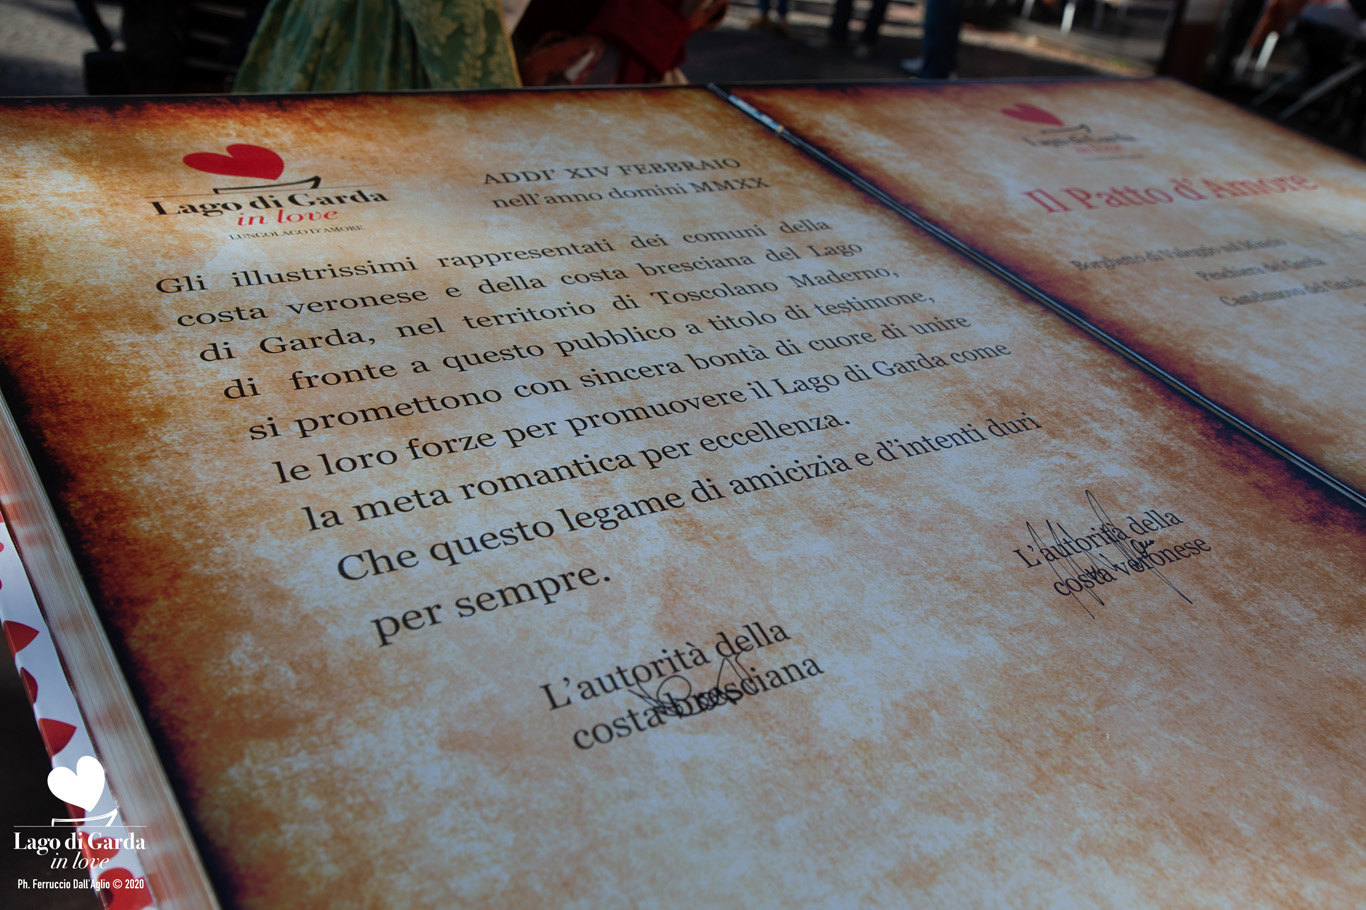 Lago di Garda
in love
LUNGOLAGO D'AMORE
ADDI' XIV FEBBRAIO
nell'anno domini MMXX
Gli illustrissimi rappresentati dei comuni della
costa veronese e della costa bresciana del Lago
di Garda, nel territorio di Toscolano Maderno,
di fronte a questo pubblico a titolo di testimone,
si promettono con sincera bontà di cuore di unire
le loro forze per promuovere il Lago di Garda come
la meta romantica per eccellenza.
Che questo legame di amicizia e d'intenti duri
per sempre.
L'autorità della
costa bresciana
L'autorità della
costa veronese
Lago di Garda
in love
Il Patto d'Amore
Borghetto di Valeggio sul Mincio
Peschiera del Garda
Castelnuovo del Garda
Lago di Garda
in love
Ph. Ferruccio Dall'Aglio © 2020